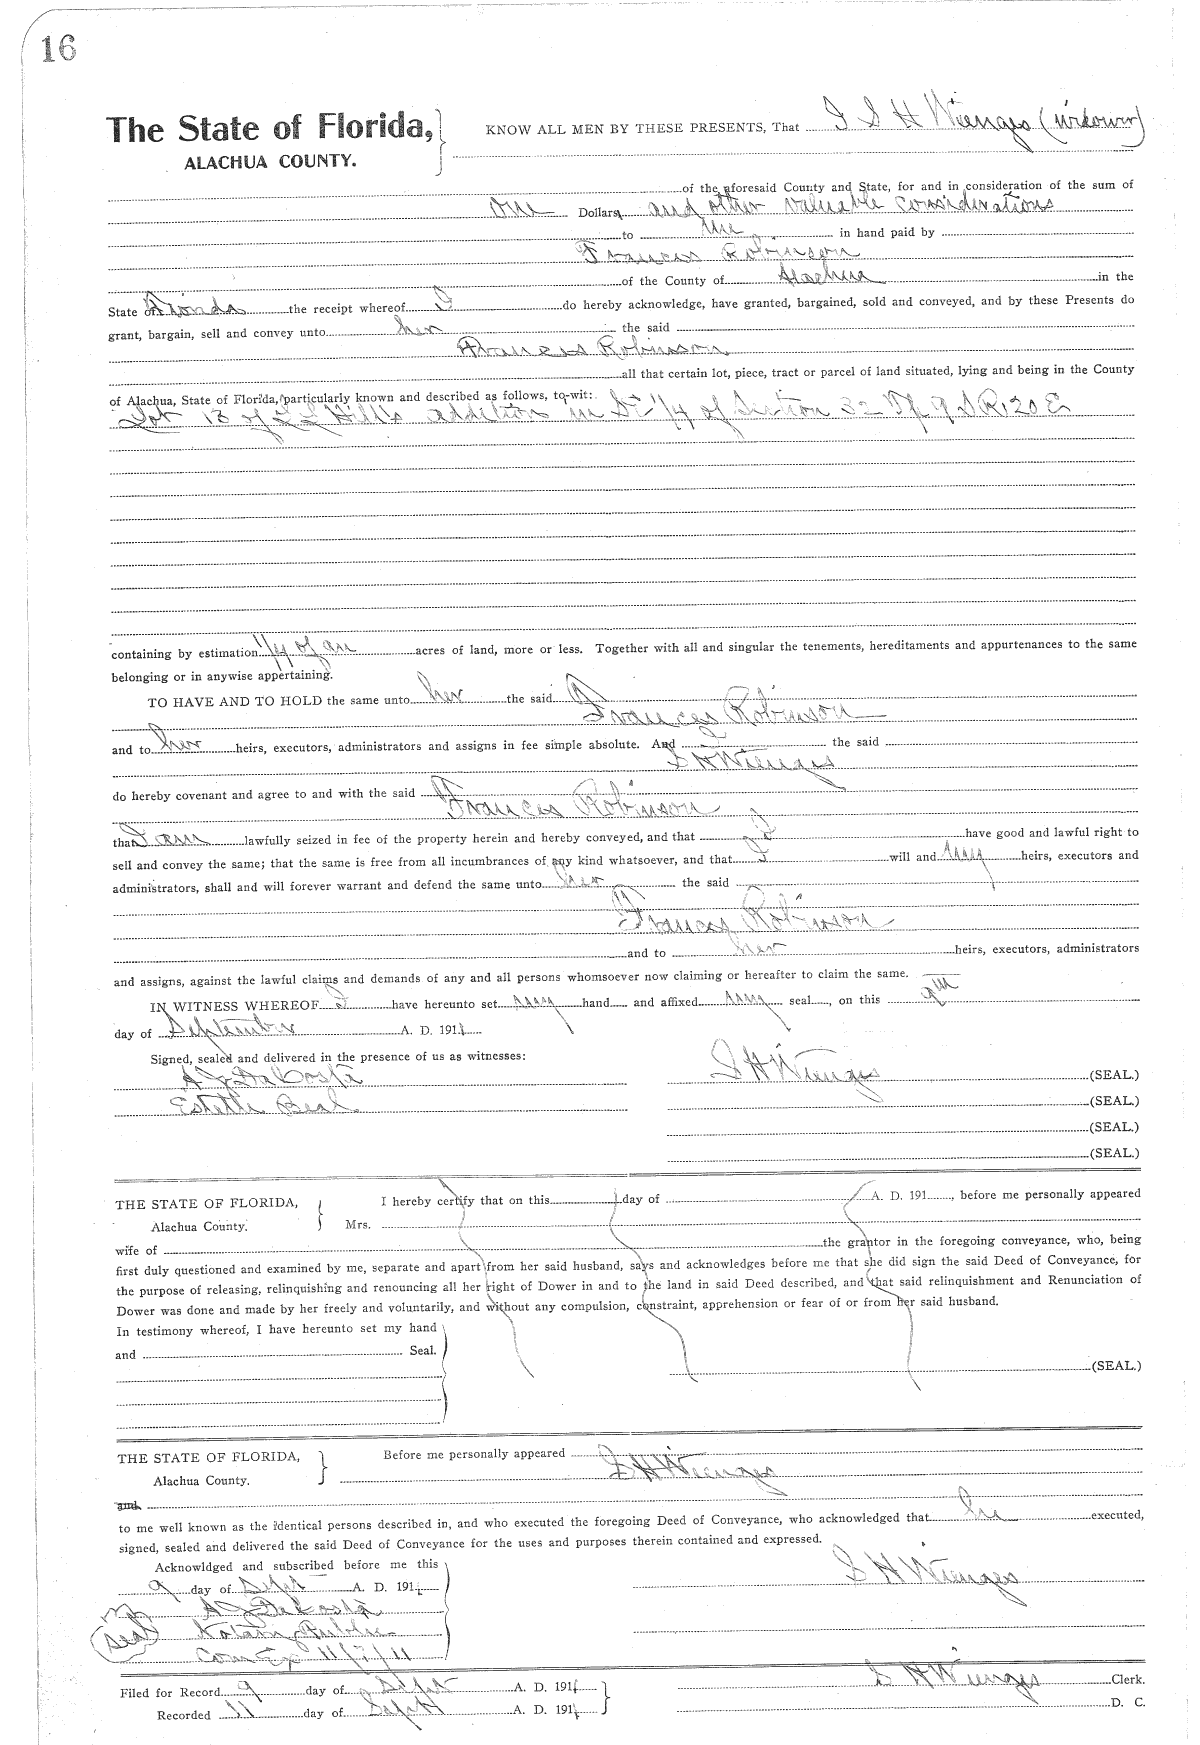 16
The State of Florida, KNOW ALL MEN BY THESE PRESENTS, That I S H Wienges (widower)
ALACHUA COUNTY.
of the aforesaid County and State, for and in consideration of the sum of
one Dollars and other valuable considerations
to me in hand paid by
Frances Robinson
of the County of Alachua in the
State of Florida the receipt whereof I do hereby acknowledge, have granted, bargained, sold and conveyed, and by these Presents do
grant, bargain, sell and convey unto her the said
Frances Robinson
all that certain lot, piece, tract or parcel of land situated, lying and being in the County
of Alachua, State of Florida, particularly known and described as follows, to-wit:
Lot 13 of L L Hill's addition in SE 1/4 of Section 32 Tp 9 S R 20 E
containing by estimation 1/4 of an acres of land, more or less. Together with all and singular the tenements, hereditaments and appurtenances to the same
belonging or in anywise appertaining.
TO HAVE AND TO HOLD the same unto her the said
Frances Robinson
and to her heirs, executors, administrators and assigns in fee simple absolute. And the said
S H Wienges
do hereby covenant and agree to and with the said Frances Robinson
that I am lawfully seized in fee of the property herein and hereby conveyed, and that I have good and lawful right to
sell and convey the same; that the same is free from all incumbrances of any kind whatsoever, and that I will and my heirs, executors and
administrators, shall and will forever warrant and defend the same unto her the said
Frances Robinson
and to her heirs, executors, administrators
and assigns, against the lawful claims and demands of any and all persons whomsoever now claiming or hereafter to claim the same.
IN WITNESS WHEREOF I have hereunto set my hand and affixed my seal, on this 9th
day of September A. D. 1911
Signed, sealed and delivered in the presence of us as witnesses:
A J DaCosta S H Wienges (SEAL.)
Estelle Beal (SEAL.)
(SEAL.)
(SEAL.)
THE STATE OF FLORIDA, I hereby certify that on this day of A. D. 191 , before me personally appeared
Alachua County. Mrs.
wife of the grantor in the foregoing conveyance, who, being
first duly questioned and examined by me, separate and apart from her said husband, says and acknowledges before me that she did sign the said Deed of Conveyance, for
the purpose of releasing, relinquishing and renouncing all her right of Dower in and to the land in said Deed described, and that said relinquishment and Renunciation of
Dower was done and made by her freely and voluntarily, and without any compulsion, constraint, apprehension or fear of or from her said husband.
In testimony whereof, I have hereunto set my hand
and Seal.
(SEAL.)
THE STATE OF FLORIDA, Before me personally appeared
Alachua County. S H Wienges
and
to me well known as the identical persons described in, and who executed the foregoing Deed of Conveyance, who acknowledged that he executed,
signed, sealed and delivered the said Deed of Conveyance for the uses and purposes therein contained and expressed.
Acknowldged and subscribed before me this
9 day of Sept A. D. 1911 S H Wienges
A J DaCosta
Seal Notary Public
Com Ex 11/7/11
Filed for Record 9 day of Sept A. D. 1911 S H Wienges Clerk.
Recorded 11 day of Sept A. D. 1911 D. C.